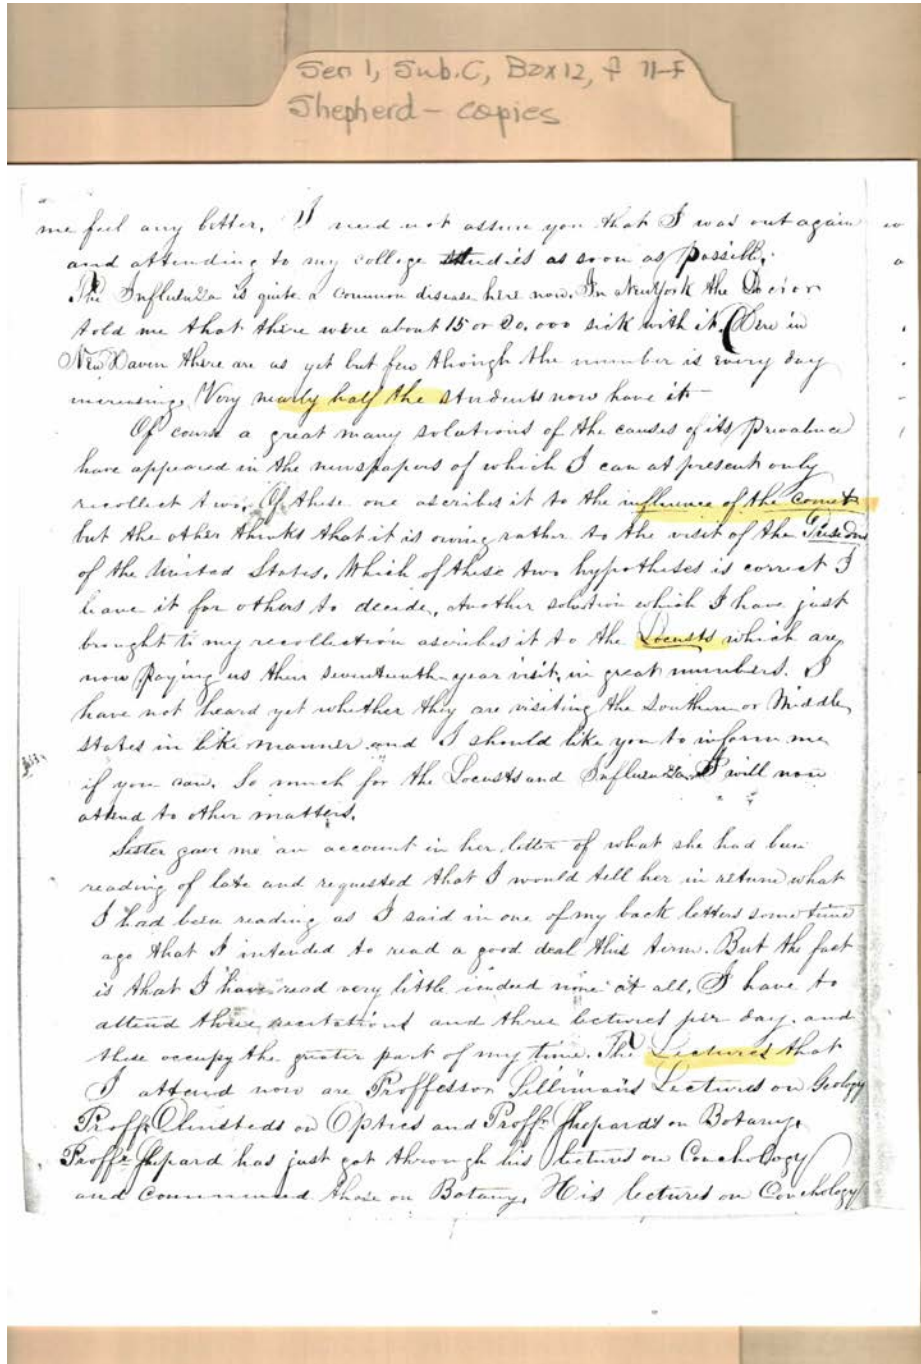 Ser 1, Sub.C, Box 12, f 11-F
Shepherd - copies
me feel any better. I need not assure you that I was out again
and attending to my college studies as soon as possible.
The Influenza is quite a common disease here now. In NewYork the Doctor
told me that there were about 15 or 20.000 sick with it. Here in
New Haven there are as yet but few though the number is every day
increasing. Very nearly half the students now have it
Of course a great many solutions of the causes of its prevalence
have appeared in the newspapers of which I can at present only
recollect two. Of these one ascribes it to the influence of the comet
but the other thinks that it is owing rather to the visit of the
of the United States. Which of these two hypotheses is correct I
leave it for others to decide. Another solution which I have just
brought to my recollection ascribes it to the Locusts which are
now paying us their seventeenth-year visit, in great numbers. I
have not heard yet whether they are visiting the Southern or Middle
states in like manner and I should like you to inform me
if you can. So much for the Locusts and Influenza. I will now
attend to other matters.
Sister gave me an account in her letter of what she had been
reading of late and requested that I would tell her in return what
I had been reading as I said in one of my back letters some time
ago that I intended to read a good deal this term. But the fact
is that I have read very little indeed none at all. I have to
attend three recitations and three lectures per day. and
these occupy the greater part of my time. The Lectures that
I attend now are Proffessor Sillimans Lectures on Geology
Proffr Olmsteds on Optics and Proffr Shepards on Botany.
Proffr Shepard has just got through his lectures on Conchology
and commenced those on Botany. His lectures on Conchology